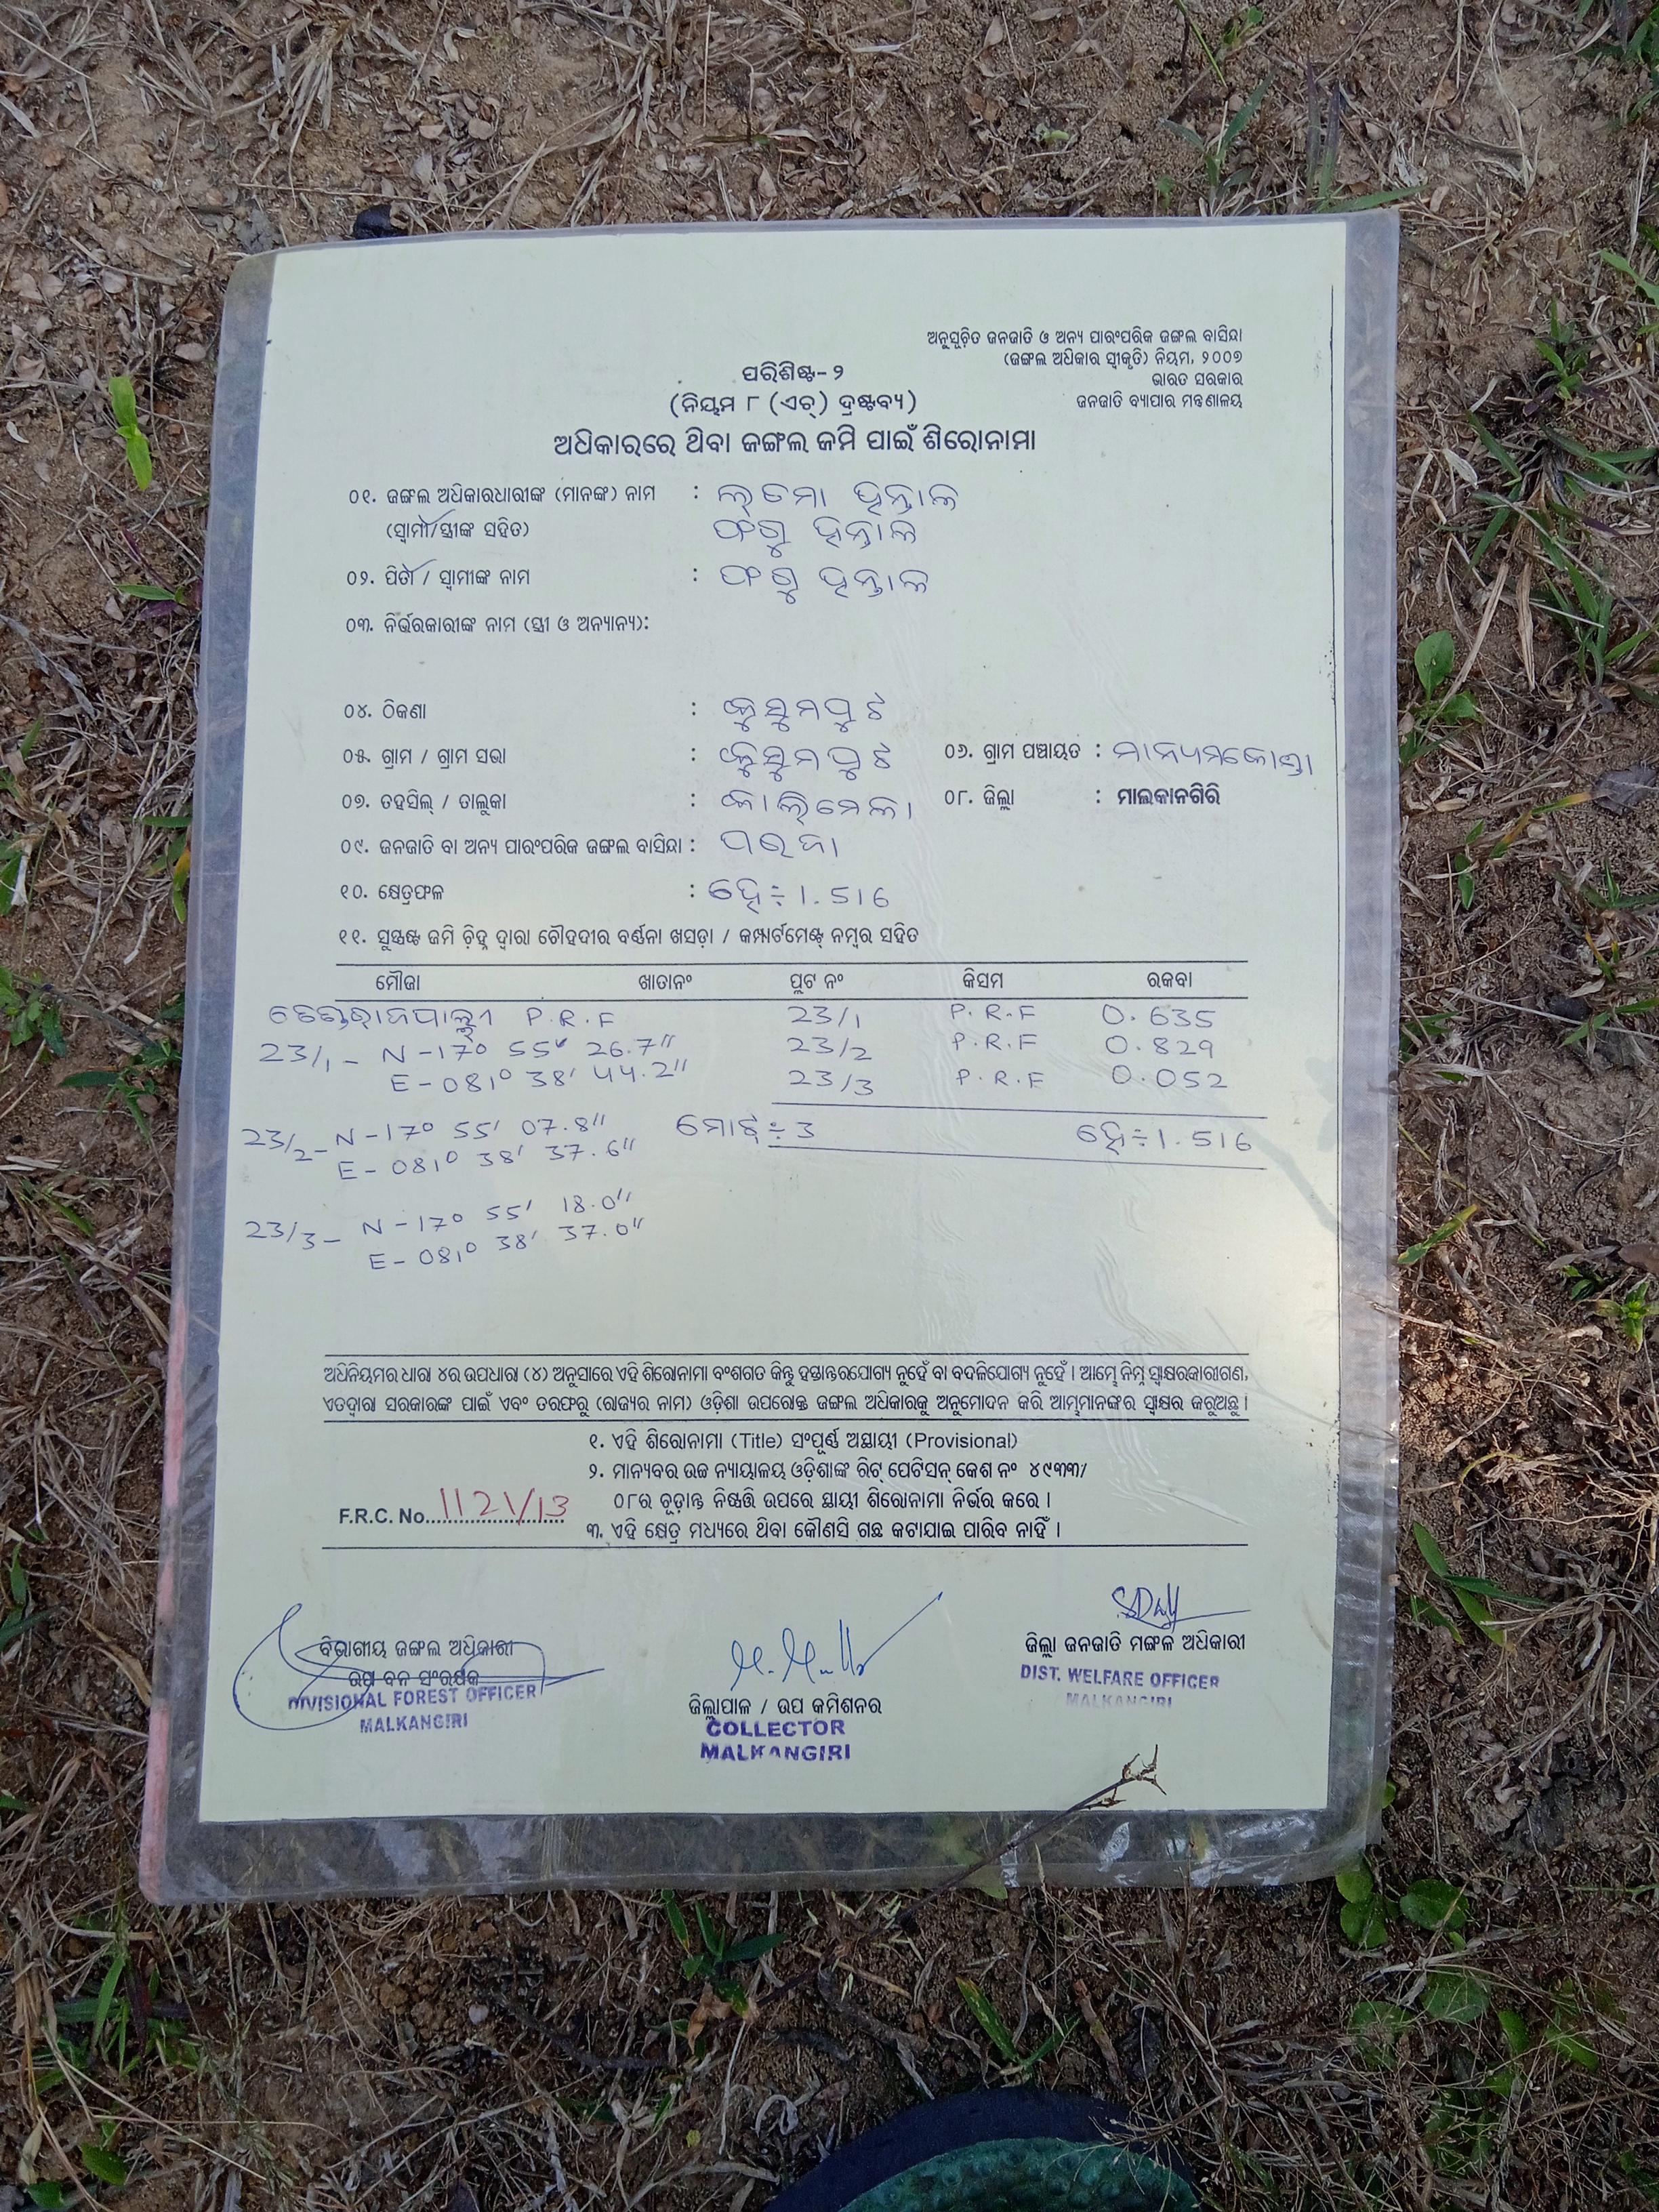 ଅନୁସୂଚିତ ଜନଜାତି ଓ ଅନ୍ୟ ପାରଂପରିକ ଜଙ୍ଗଲ ବାସିନ୍ଦା
(ଜଙ୍ଗଲ ଅଧିକାର ସ୍ୱୀକୃତି) ନିୟମ, ୨୦୦୭
ଭାରତ ସରକାର
ଜନଜାତି ବ୍ୟାପାର ମନ୍ତ୍ରଣାଳୟ
ପରିଶିଷ୍ଟ-୨
(ନିୟମ ୮ (ଏଚ୍) ଦ୍ରଷ୍ଟବ୍ୟ)
ଅଧିକାରରେ ଥିବା ଜଙ୍ଗଲ ଜମି ପାଇଁ ଶିରୋନାମା
୦୧. ଜଙ୍ଗଲ ଅଧିକାରଧାରୀଙ୍କ (ମାନଙ୍କ) ନାମ : ହନ୍ତାଳ
(ସ୍ୱାମୀ/ସ୍ତ୍ରୀଙ୍କ ସହିତ) ଫଗୁ ହନ୍ତାଳ
୦୨. ପିତା / ସ୍ୱାମୀଙ୍କ ନାମ : ଫଗୁ ହନ୍ତାଳ
୦୩. ନିର୍ଭରକାରୀଙ୍କ ନାମ (ସ୍ତ୍ରୀ ଓ ଅନ୍ୟାନ୍ୟ):
୦୪. ଠିକଣା : କୁସୁମପୁଟ
୦୫. ଗ୍ରାମ / ଗ୍ରାମ ସଭା : କୁସୁମପୁଟ ୦୬. ଗ୍ରାମ ପଞ୍ଚାୟତ : ମାନ୍ୟମକୋଣ୍ଡା
୦୭. ତହସିଲ୍ / ତାଲୁକା : କାଲିମେଳା ୦୮. ଜିଲ୍ଲା : ମାଲକାନଗିରି
୦୯. ଜନଜାତି ବା ଅନ୍ୟ ପାରଂପରିକ ଜଙ୍ଗଲ ବାସିନ୍ଦା : ପରଜା
୧୦. କ୍ଷେତ୍ରଫଳ : ହେ÷1.516
୧୧. ସୁସ୍ପଷ୍ଟ ଜମି ଚିହ୍ନ ଦ୍ୱାରା ଚୌହଦୀର ବର୍ଣ୍ଣନା ଖସଡ଼ା / କମ୍ପାର୍ଟମେଣ୍ଟ୍ ନମ୍ବର ସହିତ
ମୌଜା ଖାତାନଂ ପ୍ଲଟ ନଂ କିସମ ରକବା
P.R.F 23/1 P.R.F 0.635
23/1- N-17° 55' 26.7" 23/2 P.R.F 0.829
E-081° 38' 44.2" 23/3 P.R.F 0.052
23/2- N-17° 55' 07.8" ମୋଟ୍÷3 ହେ÷1.516
E-081° 38' 37.6"
23/3- N-17° 55' 18.0"
E-081° 38' 37.0"
ଅଧିନିୟମର ଧାରା ୪ର ଉପଧାରା (୪) ଅନୁସାରେ ଏହି ଶିରୋନାମା ବଂଶଗତ କିନ୍ତୁ ହସ୍ତାନ୍ତରଯୋଗ୍ୟ ନୁହେଁ ବା ବଦଳିଯୋଗ୍ୟ ନୁହେଁ । ଆମ୍ଭେ ନିମ୍ନ ସ୍ୱାକ୍ଷରକାରୀଗଣ,
ଏତଦ୍ୱାରା ସରକାରଙ୍କ ପାଇଁ ଏବଂ ତରଫରୁ (ରାଜ୍ୟର ନାମ) ଓଡ଼ିଶା ଉପରୋକ୍ତ ଜଙ୍ଗଲ ଅଧିକାରକୁ ଅନୁମୋଦନ କରି ଆମ୍ଭମାନଙ୍କର ସ୍ୱାକ୍ଷର କରୁଅଛୁ ।
୧. ଏହି ଶିରୋନାମା (Title) ସଂପୂର୍ଣ୍ଣ ଅସ୍ଥାୟୀ (Provisional)
୨. ମାନ୍ୟବର ଉଚ୍ଚ ନ୍ୟାୟାଳୟ ଓଡ଼ିଶାଙ୍କ ରିଟ୍ ପେଟିସନ୍ କେଶ ନଂ ୪୯୩୩/
୦୮ର ଚୂଡ଼ାନ୍ତ ନିଷ୍ପତ୍ତି ଉପରେ ସ୍ଥାୟୀ ଶିରୋନାମା ନିର୍ଭର କରେ ।
F.R.C. No. 1121/13
୩. ଏହି କ୍ଷେତ୍ର ମଧ୍ୟରେ ଥିବା କୌଣସି ଗଛ କଟାଯାଇ ପାରିବ ନାହିଁ ।
ବିଭାଗୀୟ ଜଙ୍ଗଲ ଅଧିକାରୀ
ଉପ ବନ ସଂରକ୍ଷକ
DIVISIONAL FOREST OFFICER
MALKANGIRI
ଜିଲ୍ଲାପାଳ / ଉପ କମିଶନର
COLLECTOR
MALKANGIRI
ଜିଲ୍ଲା ଜନଜାତି ମଙ୍ଗଳ ଅଧିକାରୀ
DIST. WELFARE OFFICER
MALKANGIRI